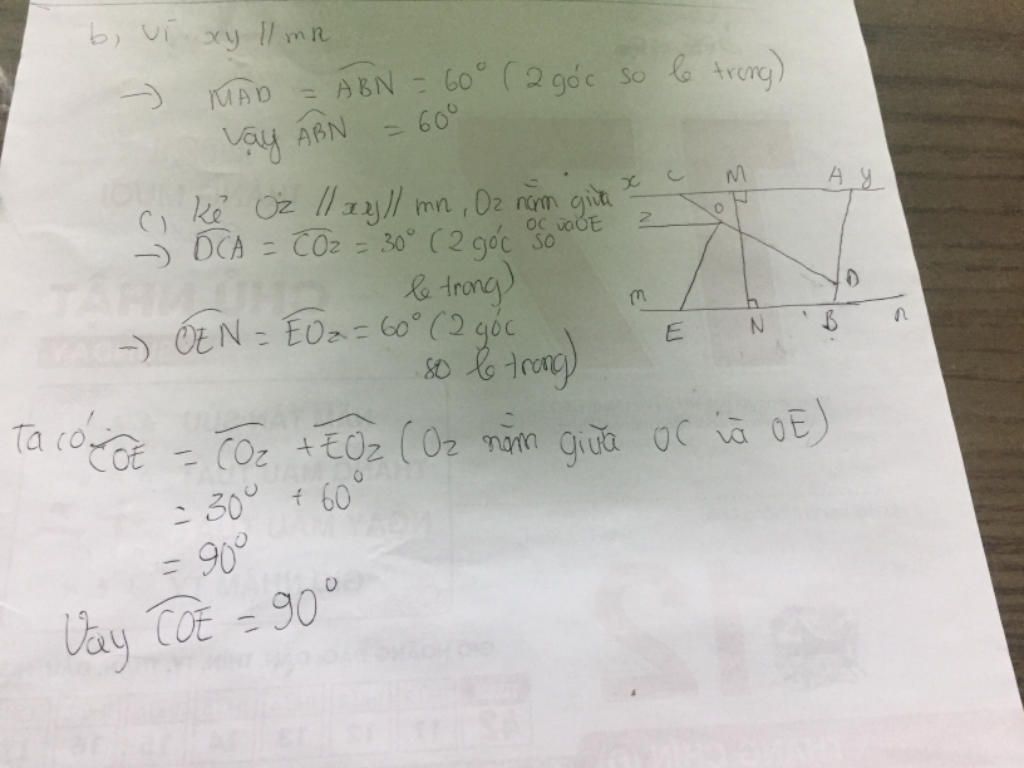 b, Vì xy // mn
→ MAD = ABN = 60° (2 góc so le trong)
Vậy ABN = 60°
c, Kẻ Oz // xy // mn, Oz nằm giữa
OC và OE
→ DCA = COz = 30° (2 góc so
le trong)
→ OEN = EOz = 60° (2 góc
so le trong)
x C M A y
z O
D
m E N B n
Ta có COE = COz + EOz (Oz nằm giữa OC và OE)
= 30° + 60°
= 90°
Vậy COE = 90°